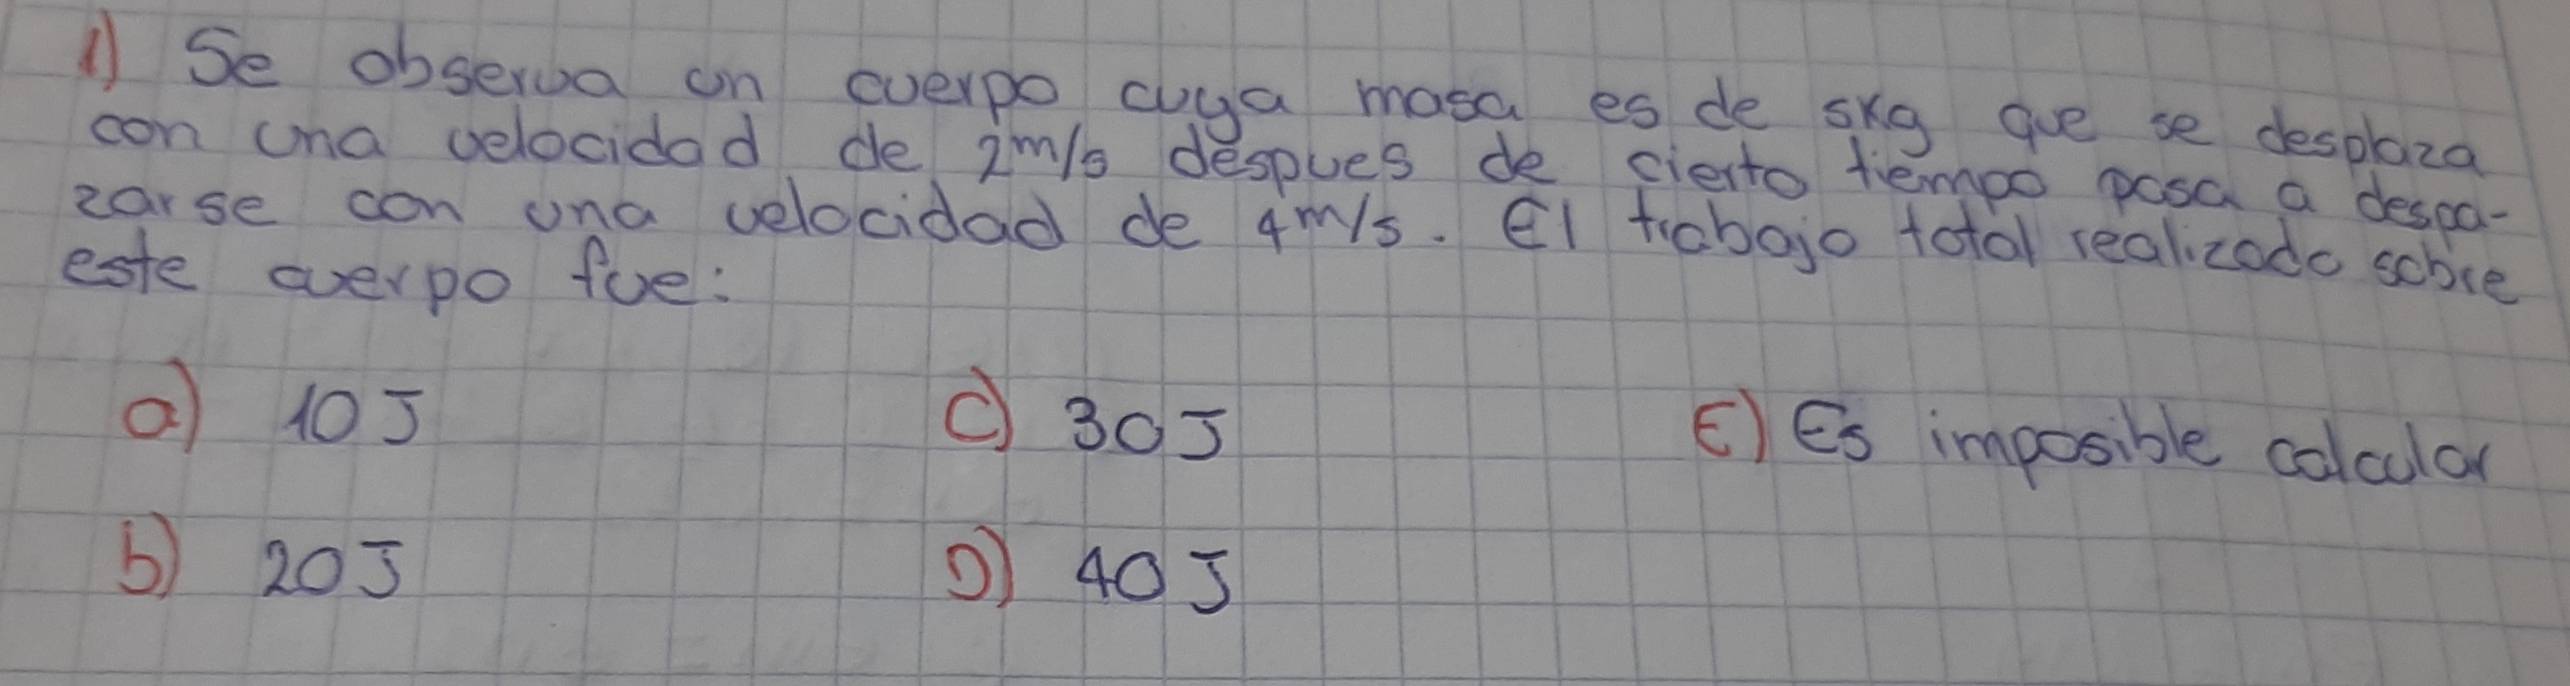 1) Se observa un cuerpo cuya masa es de 5kg que se desplaza
con una velocidad de 2m/s despues de cierto tiempo pasa a despa-
zarse con una velocidad de 4m/s. El trabajo total realizado sobre
este cuerpo fue:
a) 10 J c) 30 J E) Es imposible calcular
b) 20 J D) 40 J